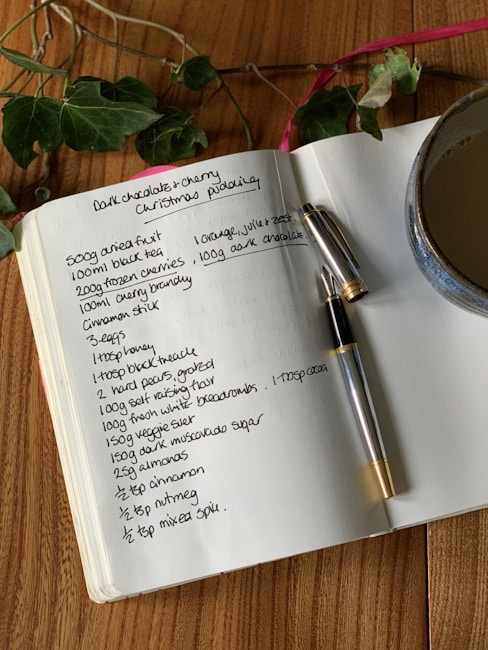 Dark chocolate & cherry
Christmas pudding
500g dried fruit
1 orange, juice & zest
100ml black tea
200g frozen cherries, 100g dark chocolate
100ml cherry brandy
Cinnamon stick
3 eggs
1 tbsp honey
1 tbsp black treacle
2 hard pears, grated
100g self raising flour
100g fresh white breadcrumbs. 1 tbsp cocoa
150g veggie suet
150g dark muscavado sugar
25g almonds
½ tsp cinnamon
½ tsp nutmeg
½ tsp mixed spice.